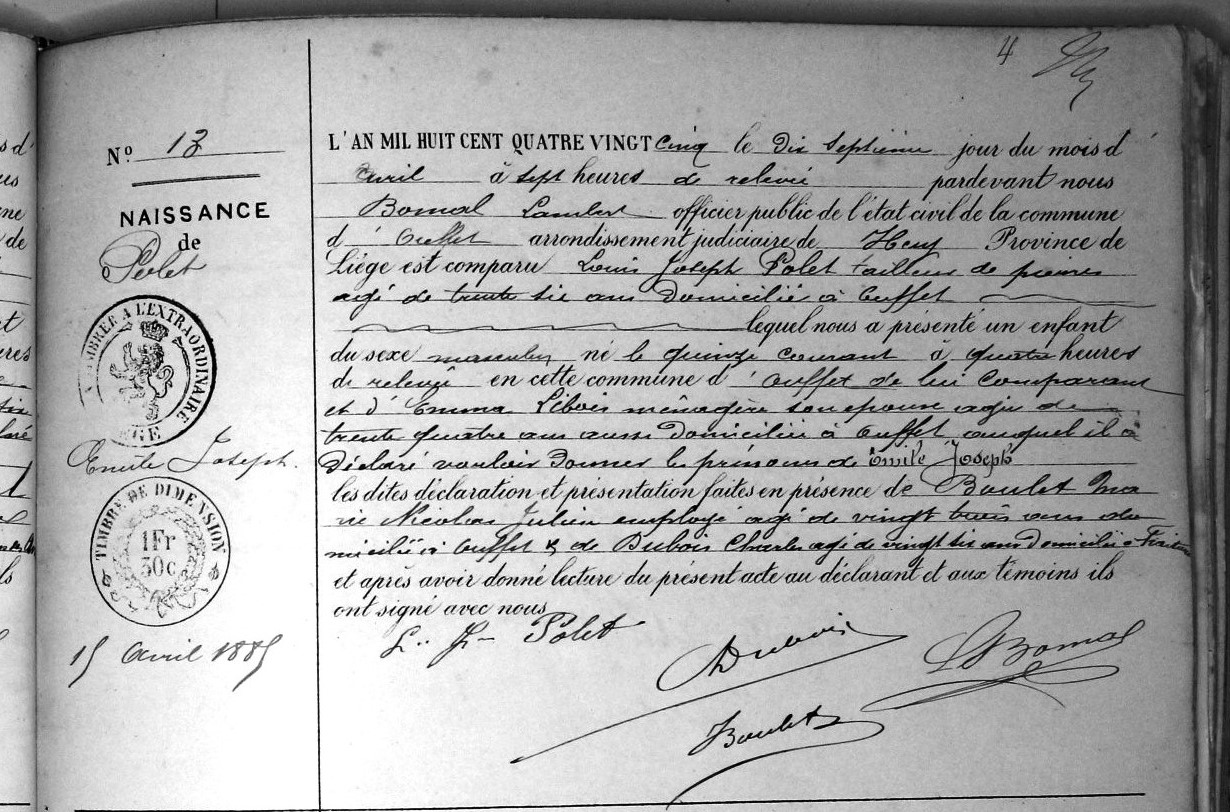 4
Nº 13
NAISSANCE
de
Polet
TIMBRER A L'EXTRAORDINAIRE
Emile Joseph.
TIMBRE DE DIMENSION
1Fr
30c
15 Avril 1885
L'AN MIL HUIT CENT QUATRE VINGT cinq le dix septième jour du mois d'
avril à sept heures de relevée pardevant nous
Bomal Lambert officier public de l'état civil de la commune
d' Ouffet arrondissement judiciaire de Huy Province de
Liège est comparu Louis Joseph Polet tailleur de pierres
agé de trente six ans domicilié à Ouffet
lequel nous a présenté un enfant
du sexe masculin né le quinze courant à quatre heures
de relevée en cette commune d' Ouffet de lui comparant
et d' Emma Libois ménagère son epouse agée de
trente quatre ans aussi domiciliée à Ouffet auquel il a
déclaré vouloir donner les prénoms de Emile Joseph
les dites déclaration et présentation faites en présence de Boulet Ma
rie Nicolas Julien employé agé de vingt trois ans do
micilié à Ouffet & de Dubois Charles agé de vingt six ans domicilié à
et après avoir donné lecture du présent acte au déclarant et aux témoins ils
ont signé avec nous
L. J- Polet
Dubois
LBomal
Boulet